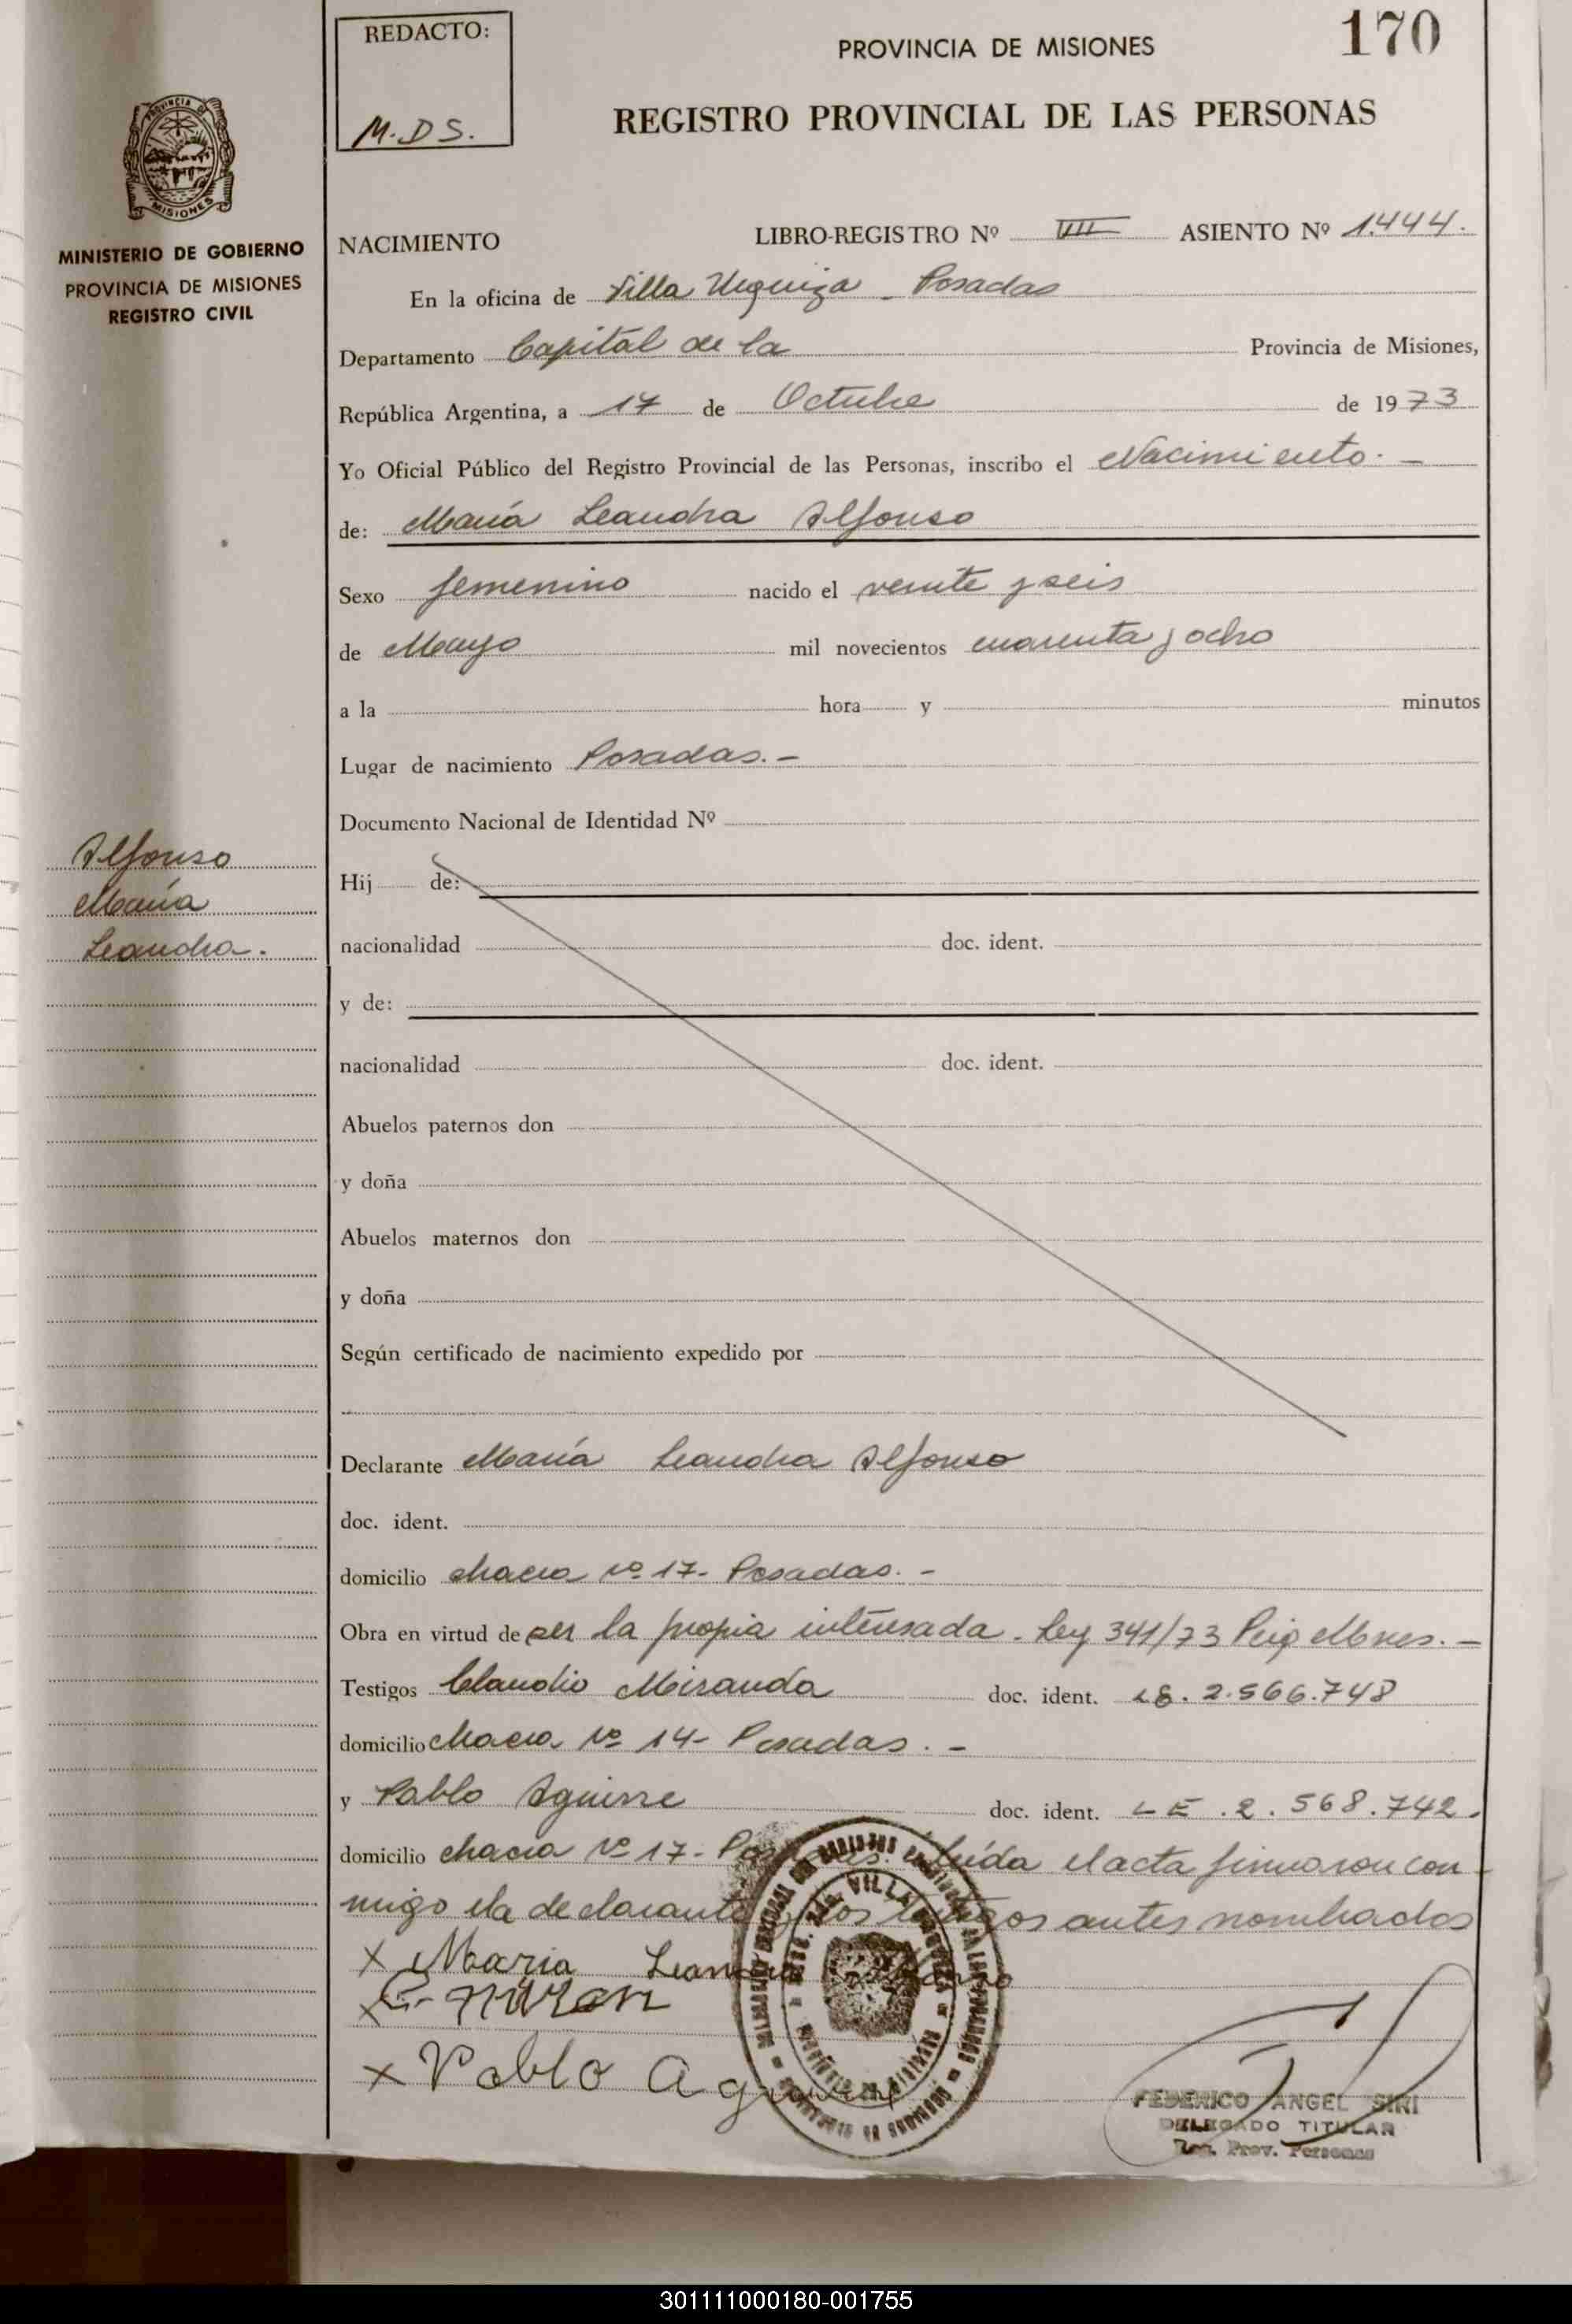 REDACTO:
M.D.S.
PROVINCIA DE MISIONES
170
REGISTRO PROVINCIAL DE LAS PERSONAS
PROVINCIA DE
MISIONES
MINISTERIO DE GOBIERNO
PROVINCIA DE MISIONES
REGISTRO CIVIL
NACIMIENTO LIBRO-REGISTRO Nº VIII ASIENTO Nº 1.444.
En la oficina de Villa Urquiza - Posadas
Departamento Capital de la Provincia de Misiones,
República Argentina, a 17 de Octubre de 1973
Yo Oficial Público del Registro Provincial de las Personas, inscribo el Nacimiento. -
de: María Leandra Alfonso
Sexo femenino nacido el veinte y seis
de Mayo mil novecientos cuarenta y ocho
a la hora y minutos
Lugar de nacimiento Posadas. -
Documento Nacional de Identidad Nº
Alfonso
María
Leandra.
Hij de:
nacionalidad doc. ident.
y de:
nacionalidad doc. ident.
Abuelos paternos don
y doña
Abuelos maternos don
y doña
Según certificado de nacimiento expedido por
Declarante María Leandra Alfonso
doc. ident.
domicilio chacra nº 17- Posadas. -
Obra en virtud de ser la propia interesada. Ley 341/73 -
Testigos Claudio Miranda doc. ident. LE. 2.566.748
domicilio chacra Nº 14- Posadas. -
y Pablo Aguirre doc. ident. LE .2. 568.742.
domicilio chacra Nº 17- Posadas. Leída el acta firmaron con-
migo la declarante y los testigos antes nombrados
x Maria Leandra Alfonso
x
x Pablo Aguirre
VILLA URQUIZA
FEDERICO ANGEL SIRI
DELEGADO TITULAR
Reg. Prov. Personas
301111000180-001755